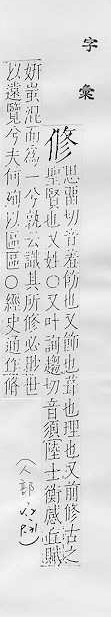 字彙
修
思畱切音羞飭也又飾也葺也理也又前修古之
聖賢也又姓〇又叶詢趨切音須陸士衡感丘賦
妍蚩混而爲一兮孰云識其所修必妙世
以遠覽兮夫何徇以區區〇經史通作脩
(人部